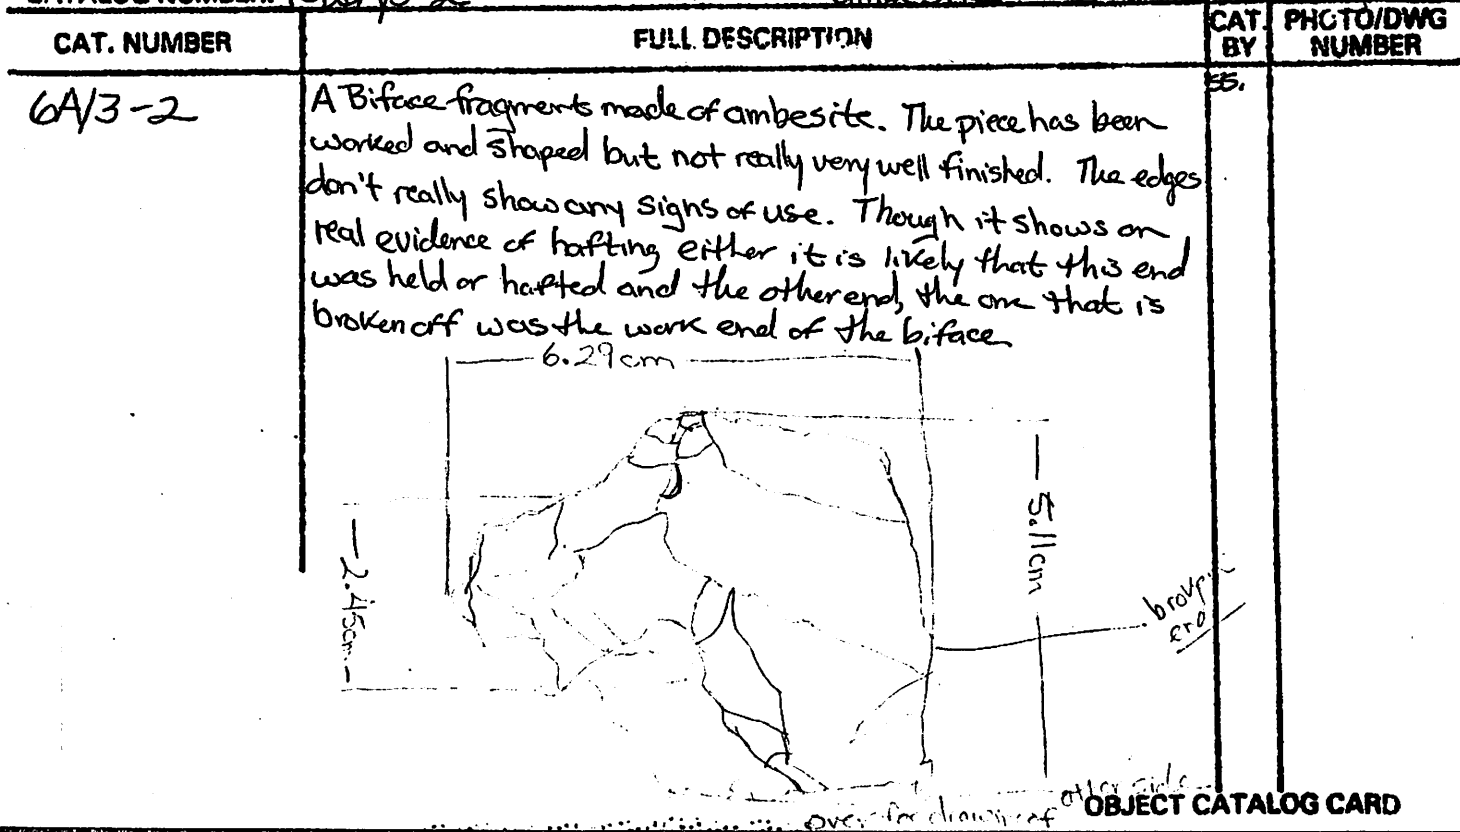 CATALOG NUMBER:
CAT. NUMBER
FULL DESCRIPTION
CAT. BY
PHOTO/DWG NUMBER
6A/3-2
SS.
A Biface fragments made of ambesite. The piece has been
worked and shaped but not really very well finished. The edges
don't really show any signs of use. Though it shows on
real evidence of hafting either it is likely that this end
was held or hafted and the other end, the one that is
broken off was the work end of the biface
6.29cm
5.11cm
2.45cm
broken
end
over for drawing of other side
OBJECT CATALOG CARD